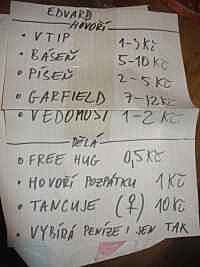 EDVARD
HOVOŘÍ
• VTIP 1-3 Kč
• BÁSEŇ 5-10 Kč
• PÍSEŇ 2-5 Kč
• GARFIELD 7-12 Kč
• VĚDOMOSI 1-2 Kč
DĚLÁ
• FREE HUG 0,5 Kč
• HOVOŘÍ POZPÁTKU 1 Kč
• TANCUJE (♀) 10 Kč
• VYBÍRÁ PENÍZE I JEN TAK